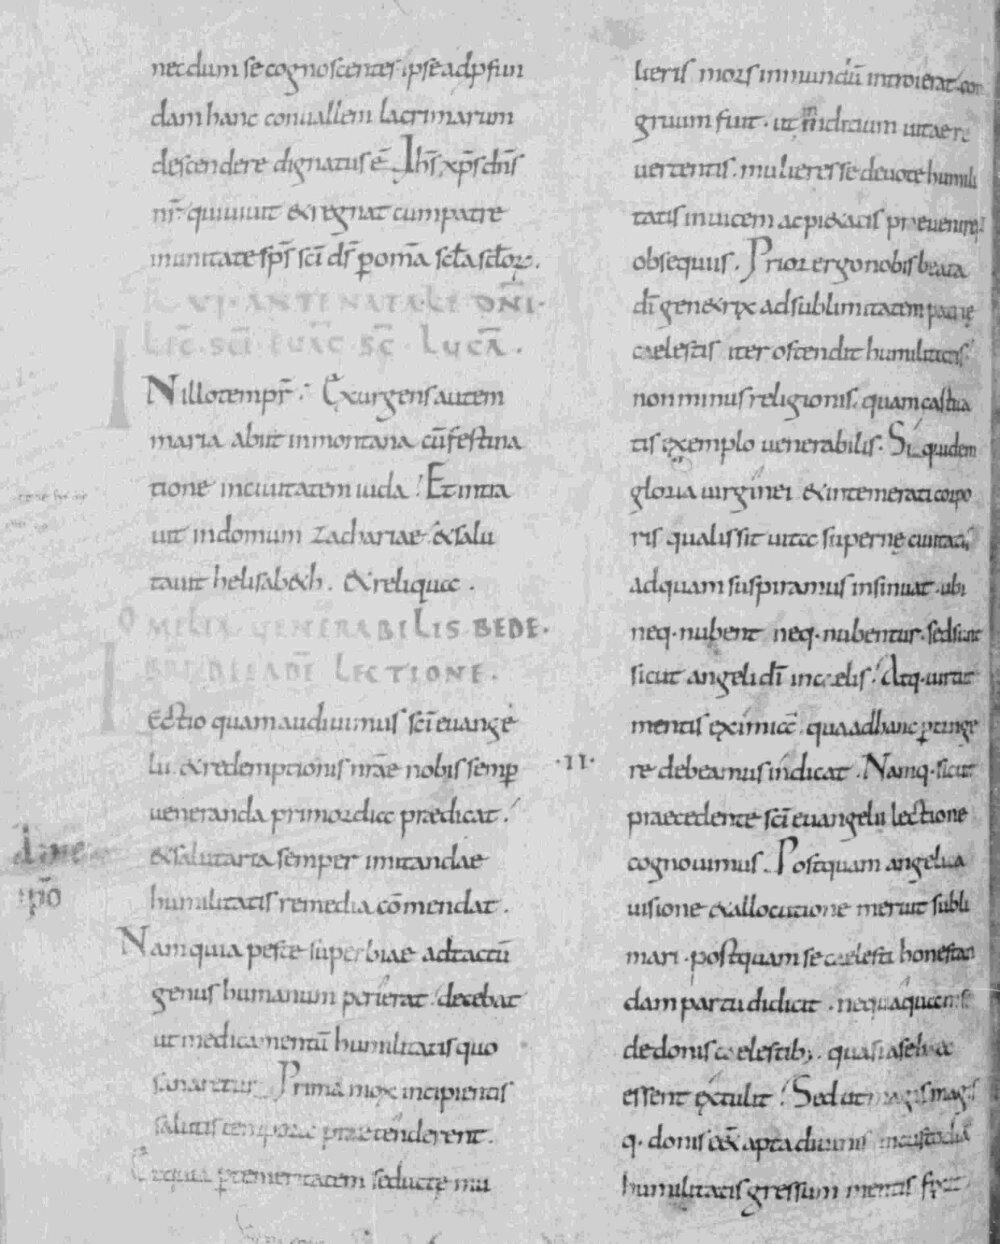 necdum se cognoscentes ipse ad ꝓfun
dam hanc conuallem lacrimarum
descendere dignatus ē. Ihs̄ xp̄s dn̄s
nr̄ qui uiuit & regnat cum patre
in unitate sp̄s sc̄i ds̄ ꝑ om̄a sc̄la sc̄loꝝ.
VI · ANTE NATALE DN̄I ·
LEC̄ · SC̄I · EUAC̄ SC̄ · LUCĀ .
IN illo tempr̄. Exurgens autem
maria abiit in montana cū festina
tione in ciuitatem iuda. Et intra
uit in domum zachariae & salu
tauit helisab&h. & reliqua.
OMELIA UENERABILIS BEDE ·
DE EADĒ LECTIONE .
LEctio quam audiuimus sc̄i euange
lii & redemptionis nr̄ae nobis semꝑ
ueneranda primordia praedicat.
& salutaria semper imitandae
humilitatis remedia cōmendat.
Nam quia peste superbiae adtactū
genus humanum perierat decebat
ut medicamentū humilitatis quo
sanaretur. Prima mox incipientis
salutis tempora praetenderent.
Et quia ꝑ temeritatem seductę mu
lieris mors in mundū introierat con
gruum fuit. ut in indicium uitae re
uertentis. mulieres se deuote humili
tatis inuicem ac pi&atis preuenirent
obsequiis. Prior ergo nobis beata
dī gen&rix ad sublimitatem patrię
caelestis iter ostendit humilitatis
non minus religionis. quam casti̇ta
tis exemplo uenerabilis. Si quidem
gloria uirginei & intemerati corpo
ris qualis sit uita supernę ciuitatis
ad quam suspiramus insinuat. ubi
neq· nubent neq· nubentur. sed sunt
sicut angeli dī in caelis. Atq· uirtut
mentis eximia. qua ad hanc ꝑtinge
re debeamus indicat. Namq· sicut
·II·
praecedente sc̄i euangelii lectione
cognouimus. Postquam angelica
uisione & allocutione meruit subli
mari. postquam se caelesti honestan
dam partu didicit. nequaquam se
de donis caelestib;. quasi a se haec
essent extulit. Sed ut magis magis
q· donis ēēt apta diuinis in custodia
humilitatis gressum mentis fixit